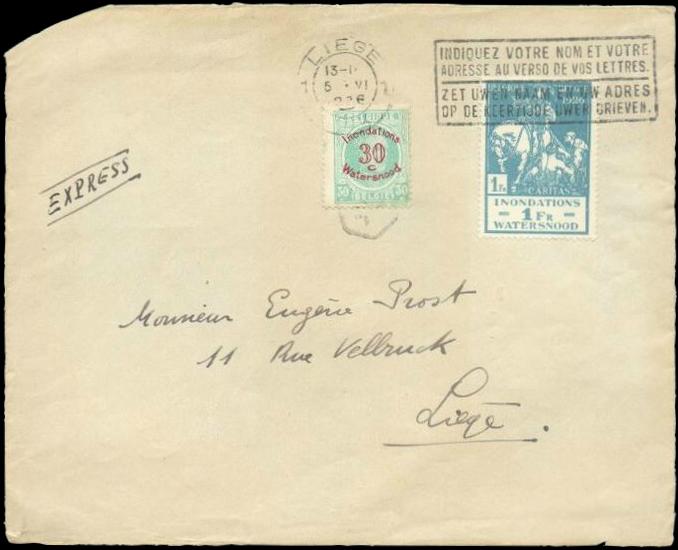 LIEGE
13-1
5 · VI
1
1
INDIQUEZ VOTRE NOM ET VOTRE
ADRESSE AU VERSO DE VOS LETTRES.
ZET UWEN NAAM EN UW ADRES
OP DE KEERZIJDE UWER BRIEVEN.
EXPRESS
Inondations
30
c
Watersnood
30 30
BELGIE
1926
1Fr
CARITAS
INONDATIONS
– 1 FR –
WATERSNOOD
Monsieur Eugène Prost
11 Rue Velbruck
Liège.